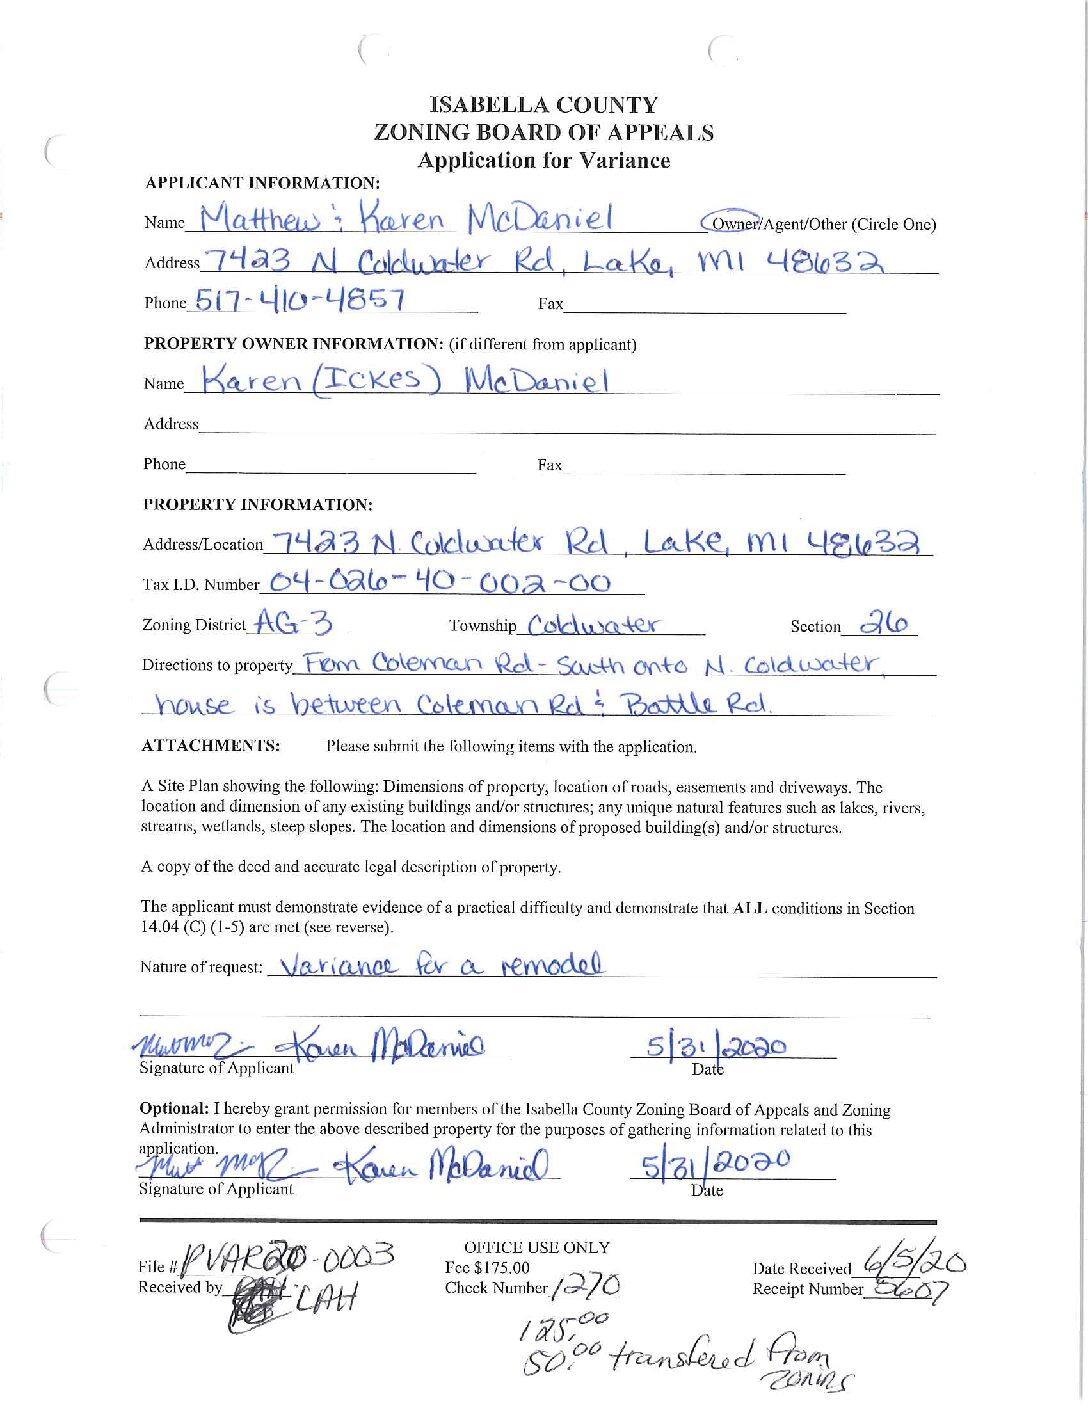 ISABELLA COUNTY
ZONING BOARD OF APPEALS
Application for Variance
APPLICANT INFORMATION:
Name Matthew & Karen McDaniel Owner/Agent/Other (Circle One)
Address 7423 N Coldwater Rd, Lake, MI 48632
Phone 517-410-4857 Fax
PROPERTY OWNER INFORMATION: (if different from applicant)
Name Karen (Ickes) McDaniel
Address
Phone Fax
PROPERTY INFORMATION:
Address/Location 7423 N. Coldwater Rd, Lake, MI 48632
Tax I.D. Number 04-026-40-002-00
Zoning District AG-3 Township Coldwater Section 26
Directions to property From Coleman Rd - South onto N. Coldwater,
house is between Coleman Rd & Battle Rd.
ATTACHMENTS: Please submit the following items with the application.
A Site Plan showing the following: Dimensions of property, location of roads, easements and driveways. The
location and dimension of any existing buildings and/or structures; any unique natural features such as lakes, rivers,
streams, wetlands, steep slopes. The location and dimensions of proposed building(s) and/or structures.
A copy of the deed and accurate legal description of property.
The applicant must demonstrate evidence of a practical difficulty and demonstrate that ALL conditions in Section
14.04 (C) (1-5) are met (see reverse).
Nature of request: Variance for a remodel
Karen McDaniel 5/31/2020
Signature of Applicant Date
Optional: I hereby grant permission for members of the Isabella County Zoning Board of Appeals and Zoning
Administrator to enter the above described property for the purposes of gathering information related to this
application.
Karen McDaniel 5/31/2020
Signature of Applicant Date
OFFICE USE ONLY
File # PVAR20-0003 Fee $175.00 Date Received 6/5/20
Received by LAH Check Number 1270 Receipt Number 5607
125.00
50.00 transfered from
zoning